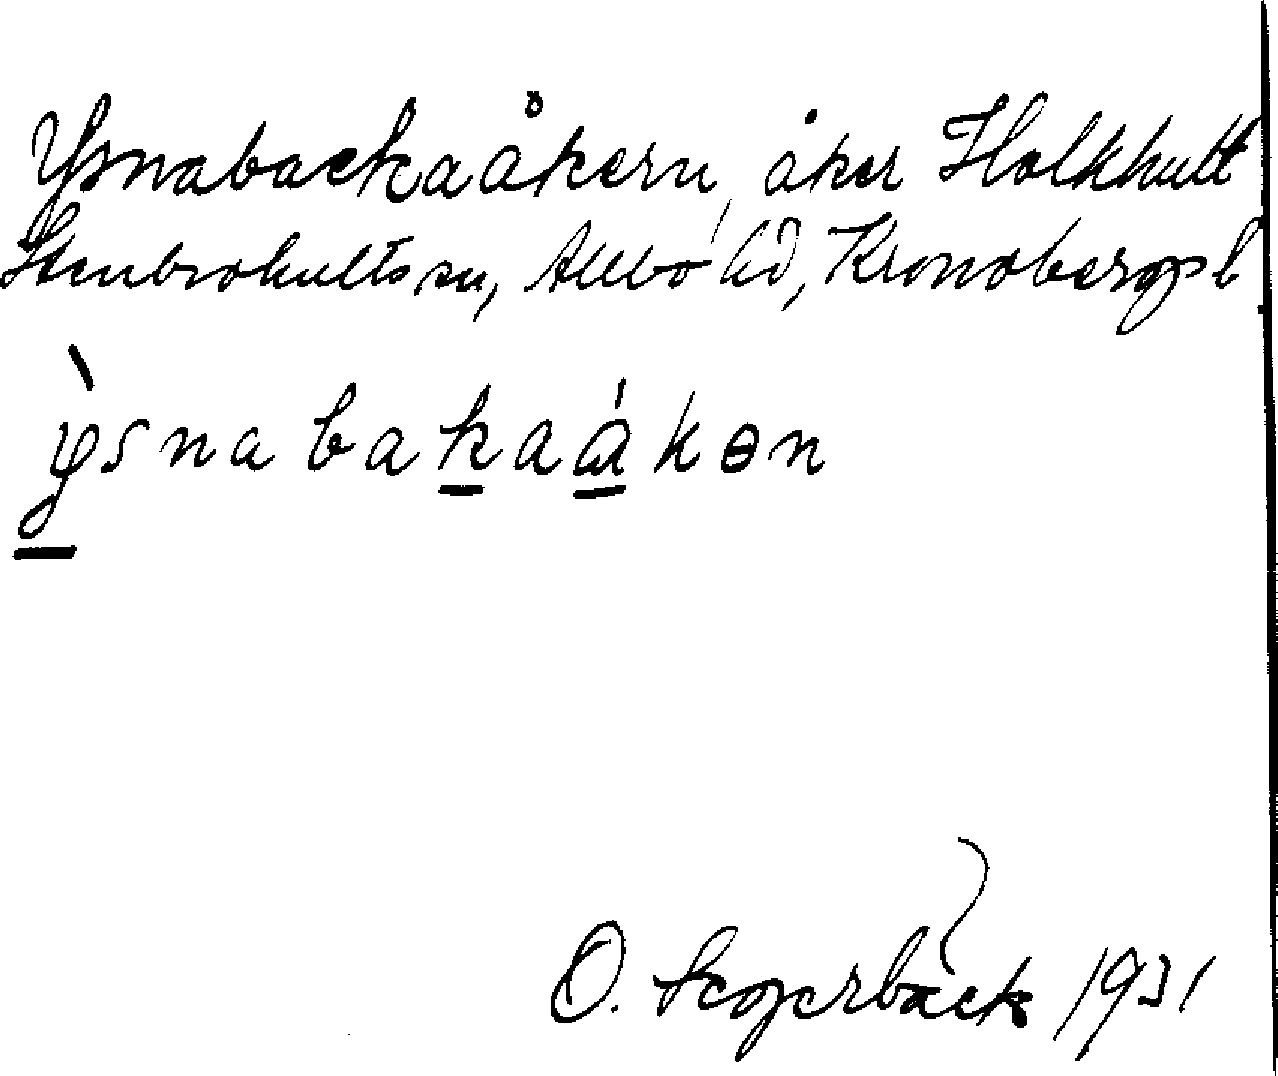 Ysnabackaåkern, åker Holkhult
Stenbrohults sn, Allbo hd, Kronobergs l
ỳsnabakaákɵn
O. Segerbäck 1931